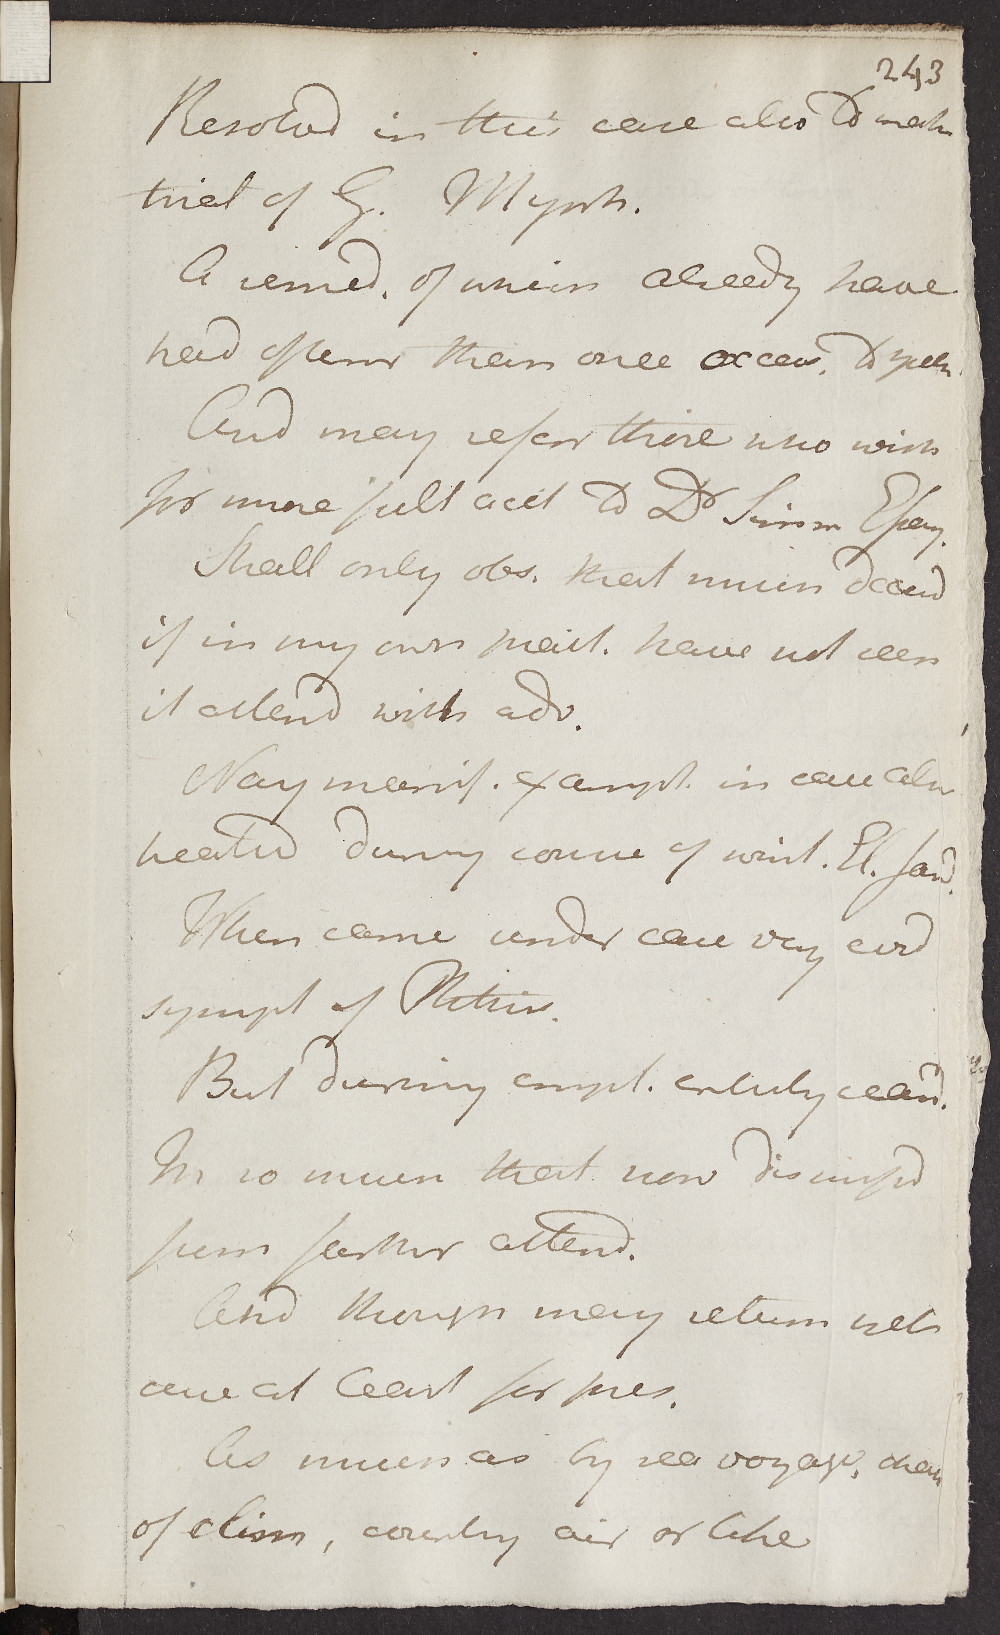 243
Resolvd in this case also to make
trial of G. Myrrh.
A remed. of which already have
had oftener than once occas. to speak
And may refer those who wish
for more full acct to Dr Simm Essay.
Shall only obs. that much deceivd
if in my own pract. have not seen
it attend with adv.
Nay manif. exampl. in case also
treated during course of wint. El.
When came under care very evid
sympt of Phthis.
But during empl. entirely ceasd.
In so much that now dismissd
from farther attend.
And though may return yet
cure at least for pres.
As much as by sea voyage, chan
of clim, country air or like